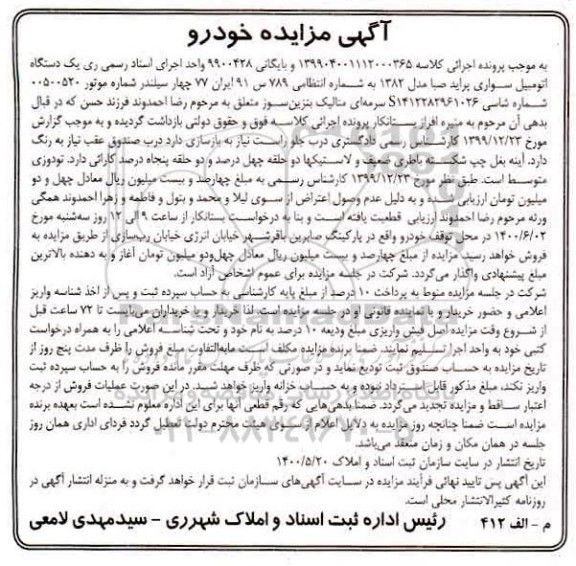 آگهی مزایده خودرو
به موجب پرونده اجرائی کلاسه ۱۳۹۹۰۴۰۰۱۱۱۲۰۰۰۳۶۵ و بایگانی ۹۹۰۰۴۲۸ واحد اجرای اسناد رسمی ری یک دستگاه
اتومبیل سواری پراید صبا مدل ۱۳۸۲ به شماره انتظامی ۷۸۹ س ۹۱ ایران ۷۷ چهار سیلندر شماره موتور ۰۰۵۰۰۵۲۰
شماره شاسی S۱۴۱۲۲۸۲۹۶۱۰۲۶ سرمه‌ای متالیک بنزین‌سوز متعلق به مرحوم رضا احمدوند فرزند حسن که در قبال
بدهی آن مرحوم به منیره افراز بستانکار پرونده اجرائی کلاسه فوق و حقوق دولتی بازداشت گردیده و به موجب گزارش
مورخ ۱۳۹۹/۱۲/۲۳ کارشناس رسمی دادگستری درب جلو راست نیاز به بازسازی دارد درب صندوق عقب نیاز به رنگ
دارد. آینه بغل چپ شکسته باطری ضعیف و لاستیکها دو حلقه چهل درصد و دو حلقه پنجاه درصد کارائی دارد. تودوزی
متوسط است. طبق نظر مورخ ۱۳۹۹/۱۲/۲۳ کارشناس رسمی به مبلغ چهارصد و بیست میلیون ریال معادل چهل و دو
میلیون تومان ارزیابی شده و به دلیل عدم وصول اعتراض از سوی لیلا و محمد و بتول و فاطمه و زهرا احمدوند همگی
ورثه مرحوم رضا احمدوند ارزیابی قطعیت یافته است و بنا به درخواست بستانکار از ساعت ۹ الی ۱۲ روز سه‌شنبه مورخ
۱۴۰۰/۶/۰۲ در محل توقف خودرو واقع در پارکینگ صابرین باقرشهر خیابان انرژی خیابان رب‌سازی از طریق مزایده به
فروش خواهد رسید. مزایده از مبلغ چهارصد و بیست میلیون ریال معادل چهل‌ودو میلیون تومان آغاز و به دهنده بالاترین
مبلغ پیشنهادی واگذار می‌گردد. شرکت در جلسه مزایده برای عموم اشخاص آزاد است.
شرکت در جلسه مزایده منوط به پرداخت ۱۰ درصد از مبلغ پایه کارشناسی به حساب سپرده ثبت و پس از اخذ شناسه واریز
اعلامی و حضور خریدار و یا نماینده قانونی او در جلسه مزایده است. لذا خریدار و یا خریداران می‌بایست تا ۷۲ ساعت قبل
از شروع وقت مزایده اصل فیش واریزی مبلغ ودیعه ۱۰ درصد به نام خود و تحت شناسه اعلامی را به همراه درخواست
کتبی خود به واحد اجرا تسلیم نمایند. ضمنا برنده مزایده مکلف است مابه‌التفاوت مبلغ فروش را ظرف مدت پنج روز از
تاریخ مزایده به حساب صندوق ثبت تودیع نماید و در صورتی که ظرف مهلت مقرر مانده فروش را به حساب سپرده ثبت
واریز نکند، مبلغ مذکور قابل استرداد نبوده و به حساب خزانه واریز خواهد شد. در این صورت عملیات فروش از درجه
اعتبار ساقط و مزایده تجدید می‌گردد. ضمنا بدهی‌هایی که رقم قطعی آنها برای این اداره معلوم نشده است بعهده برنده
مزایده است ضمنا چنانچه روز مزایده به دلایل اعلام از سوی هیئت محترم دولت تعطیل گردد فردای اداری همان روز
جلسه در همان مکان و زمان منعقد می‌باشد.
تاریخ انتشار در سایت سازمان ثبت اسناد و املاک ۱۴۰۰/۵/۲۰
این آگهی پس تایید نهائی فرآیند مزایده در سایت آگهی‌های سازمان ثبت قرار خواهد گرفت و به منزله انتشار آگهی در
روزنامه کثیرالانتشار محلی است.
م - الف ۴۱۲ رئیس اداره ثبت اسناد و املاک شهرری - سیدمهدی لامعی